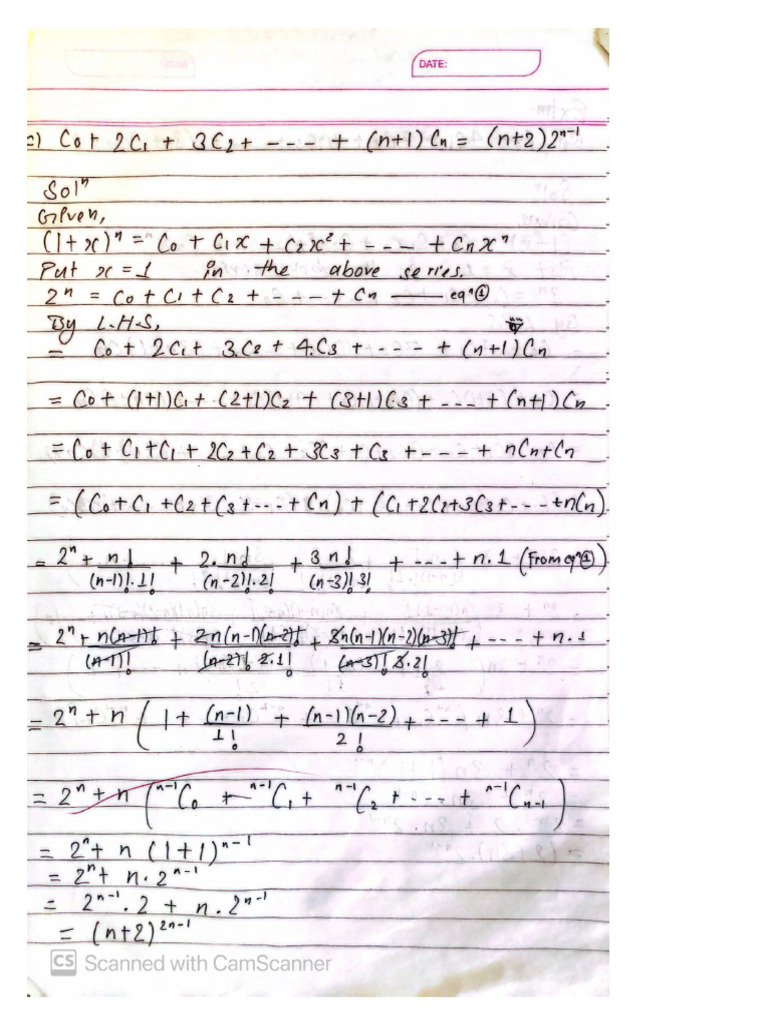 DATE:
c) C₀ + 2C₁ + 3C₂ + - - - + (n+1) Cₙ = (n+2)2ⁿ⁻¹
Solⁿ
Given,
(1+x)ⁿ = C₀ + C₁x + C₂x² + - - - - + Cₙxⁿ
Put x = 1 in the above series.
2ⁿ = C₀ + C₁ + C₂ + - - - + Cₙ —— eqⁿ ①
By L.H.S,
= C₀ + 2C₁ + 3.C₂ + 4.C₃ + - - - + (n+1)Cₙ
= C₀ + (1+1)C₁ + (2+1)C₂ + (3+1)C₃ + - - - + (n+1)Cₙ
= C₀ + C₁ + C₁ + 2C₂ + C₂ + 3C₃ + C₃ + - - - - + nCₙ + Cₙ
= (C₀ + C₁ + C₂ + C₃ + - - - + Cₙ) + (C₁ + 2C₂ + 3C₃ + - - - + nCₙ)
= 2ⁿ + n!/((n-1)!.1!) + 2.n!/((n-2)!.2!) + 3n!/((n-3)!3!) + - - - + n.1 (From eqⁿ ①)
= 2ⁿ + n(n-1)!/(n-1)! + 2n(n-1)(n-2)!/((n-2)! 2.1!) + 3n(n-1)(n-2)(n-3)!/((n-3)! 3.2!) + - - - + n.1
= 2ⁿ + n (1 + (n-1)/1! + (n-1)(n-2)/2! + - - - + 1)
= 2ⁿ + n (ⁿ⁻¹C₀ + ⁿ⁻¹C₁ + ⁿ⁻¹C₂ + - - - + ⁿ⁻¹Cₙ₋₁)
= 2ⁿ + n (1+1)ⁿ⁻¹
= 2ⁿ + n.2ⁿ⁻¹
= 2ⁿ⁻¹.2 + n.2ⁿ⁻¹
= (n+2)²ⁿ⁻¹
CS Scanned with CamScanner